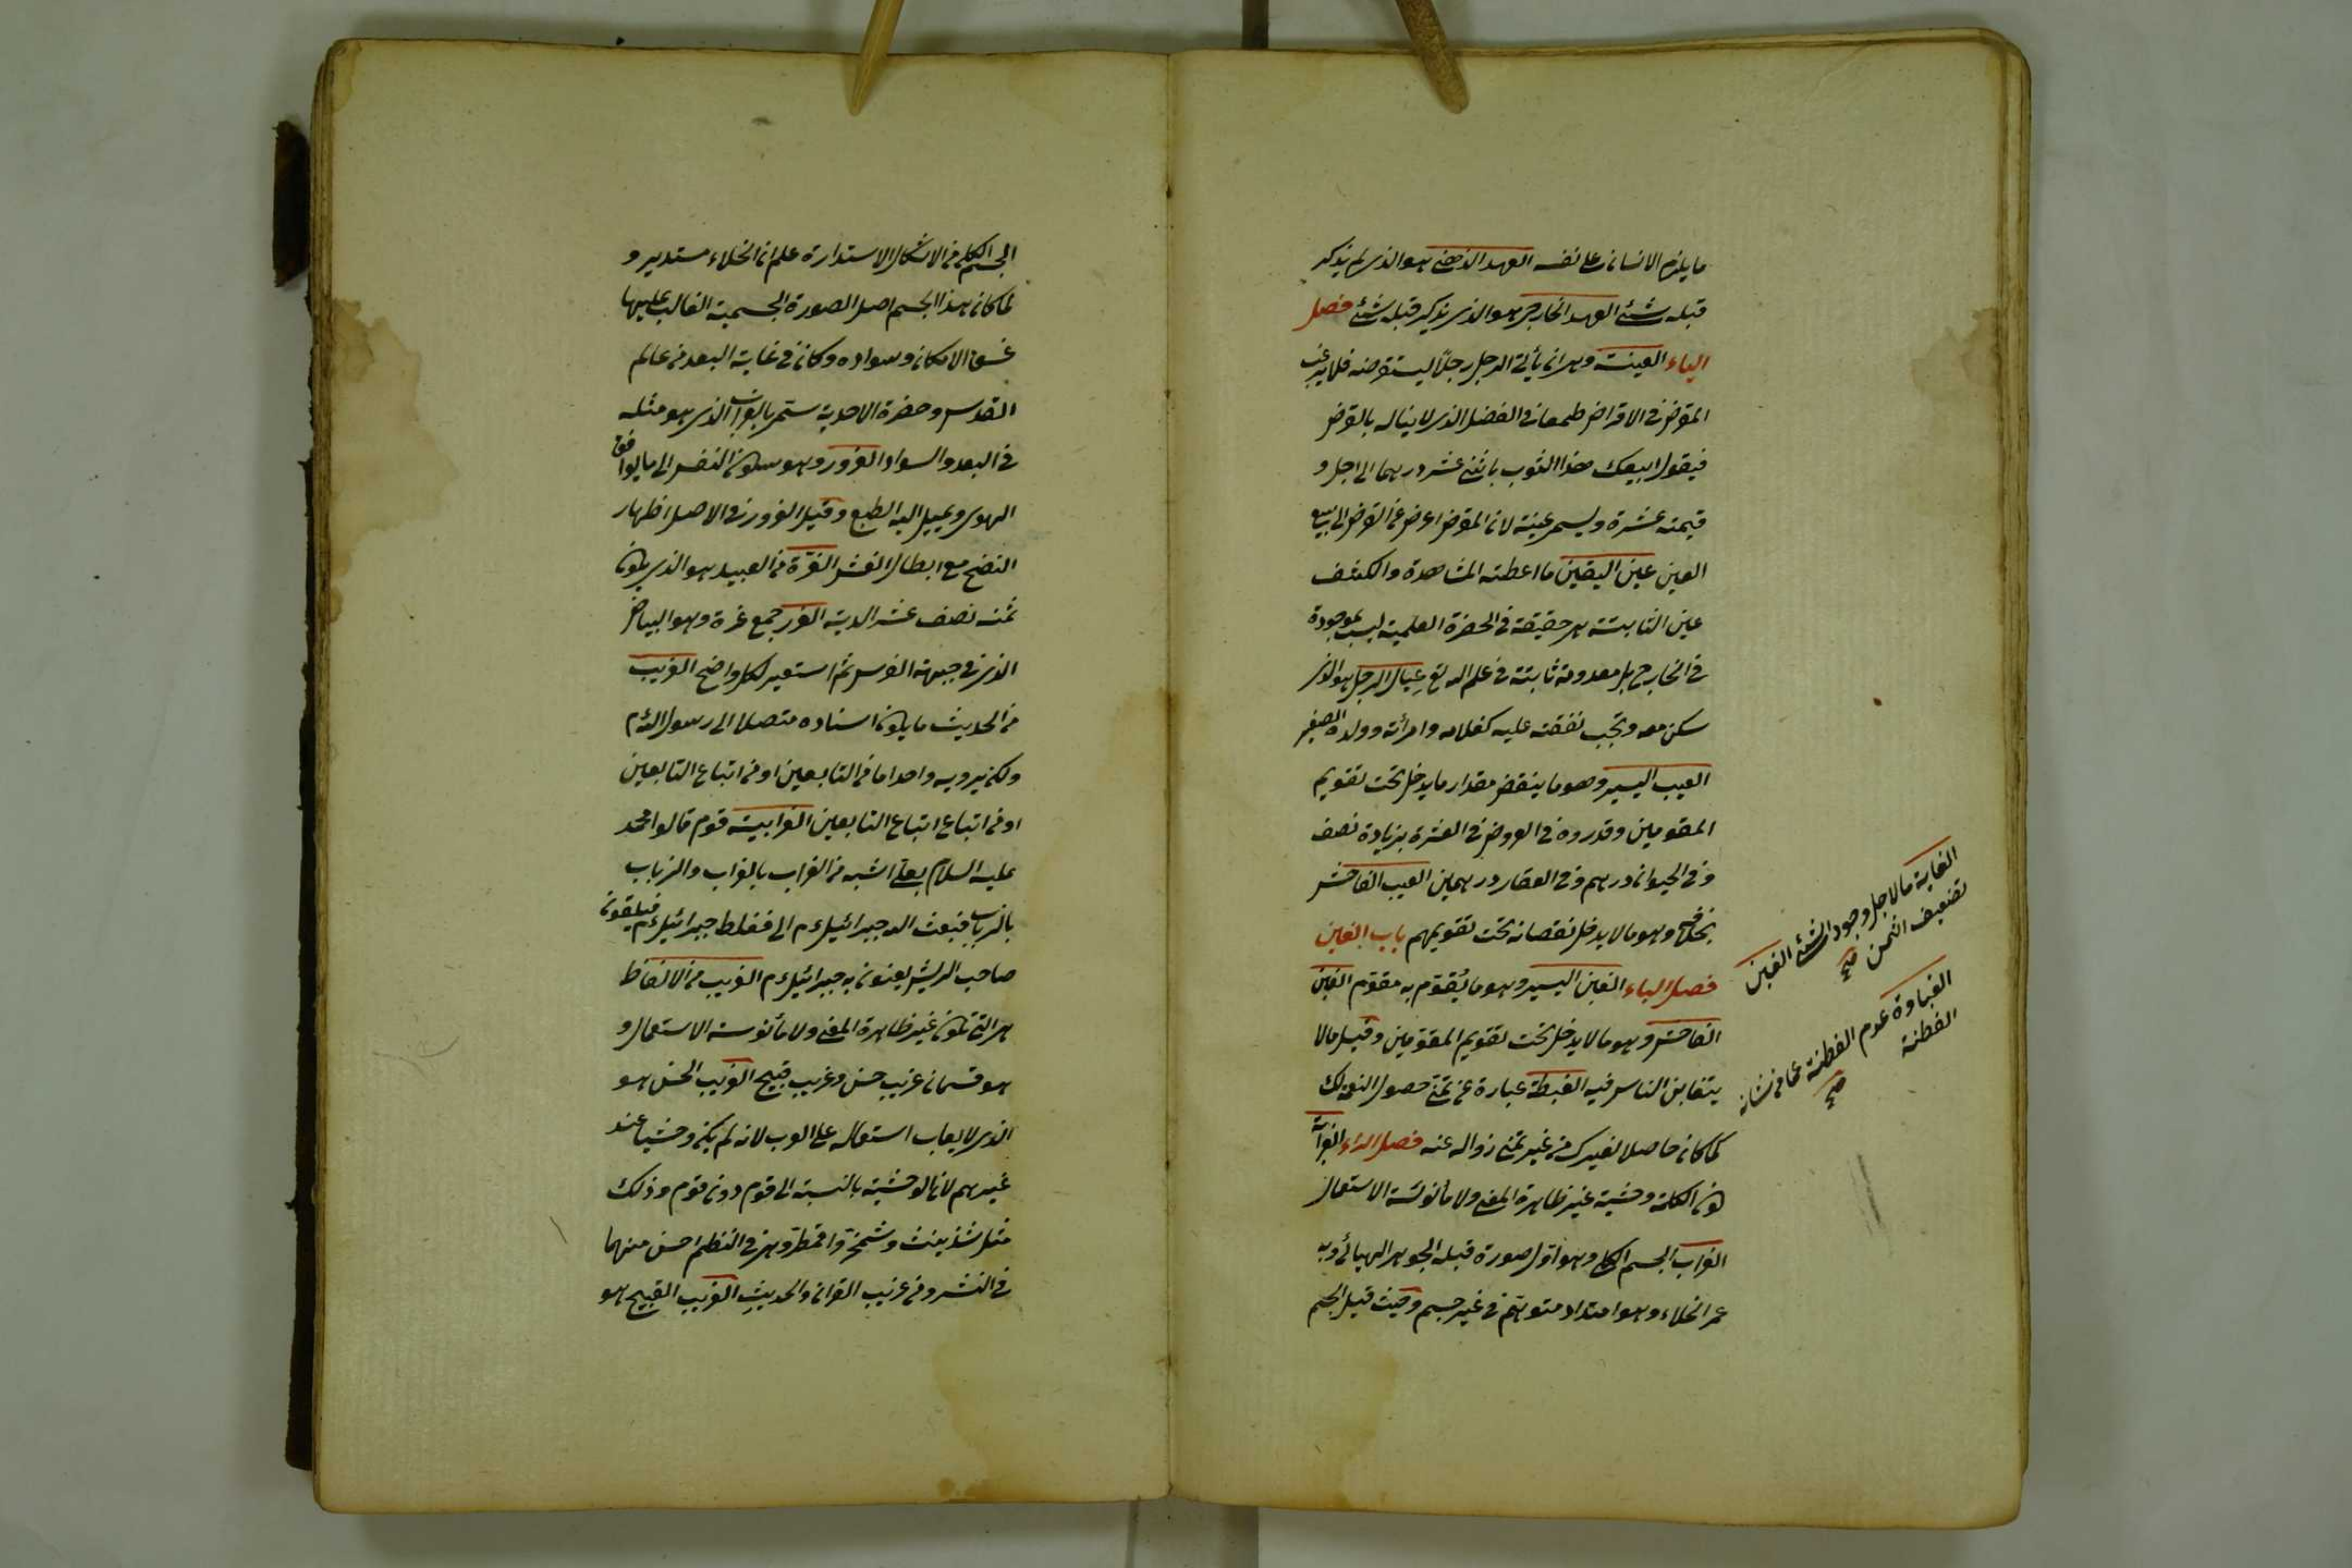 ما يلزم الانسان على نفسه العهد الذهني هو الذي لم يذكر
قبله شئ العهد الخارجي هو الذي يذكر قبله شئ فصل
الياء العينة وهي ان يأتي الرجل رجلا ليستقرضه فلا يرغب
المقرض في الاقراض طمعا في الفضل الذي لا يناله بالقرض
فيقول ابيعك هذا الثوب باثني عشر درهما الى اجل و
قيمته عشرة ويسمى عينة لان المقرض اعرض عن القرض الى بيع
العين عين اليقين ما اعطته المشاهدة والكشف
عين الثابتة هي حقيقة في الحضرة العلمية ليست بموجودة
في الخارج بل معدومة ثابتة في علم الله تع عيال الرجل هو الذي
سكن معه وتجب نفقته عليه كغلامه وامرأته وولده الصغير
العيب اليسير وهو ما ينقض مقدار ما يدخل تحت تقويم
المقومين وقدروه في العروض في العشرة بزيادة نصف
وفي الحيوان درهم وفي العقار درهمين العيب الفاحش
بخلافه وهو ما لا يدخل نقصانه تحت تقويمهم باب الغين
فصل الباء الغبن اليسير وهو ما يُقوّم به مقوم الغبن
الفاحش وهو ما لا يدخل تحت تقويم المقومين وقيل ما لا
يتغابن الناس فيه الغبطة عبارة عن تمنّى حصول النعمة لك
كما كان حاصلا لغيرك من غير تمني زواله عنه فصل الراء الغرابة
كون الكلمة وحشية غير ظاهرة المعنى ولا مأنوسة الاستعمال
الغراب الجسم الكلي وهو اول صورة قبله الجوهر الهبائي وبه
عمر الخلاء وهو امتداد متوهم في غير جسم وحيث قبل الجسم
الغاية ما لاجل وجود الشئ الغبن
تضعيف الثمن
الغباوة عدم الفطنة عما من شانه
الفطنة
الجسم الكلي من الاشكال الاستدارة علم ان الخلاء مستدير و
لما كان هذا الجسم اصل الصورة الجسمية الغالب عليها
غسق الامكان وسواده وكان في غاية البعد من عالم
القدس وحضرة الاحدية سمى بالغراب الذي هو مثله
في البعد والسواد الغرور وهو سكون النفس الى ما يوافق
الهوى ويميل اليه الطبع وقيل الغرور في الاصل اظهار
النصح مع ابطال الغش الغرّة من العبيد هو الذي يكون
ثمنه نصف عشر الدية الغرر جمع غرة وهو البياض
الذي في جبهة الفرس ثم استعير لكل واضح الغريب
من الحديث ما يكون اسناده متصلا الى رسول الله م
ولكن يرويه واحد اما من التابعين او من اتباع التابعين
او من اتباع اتباع التابعين الغرابية قوم قالوا محمد
عليه السلام بعلي اشبه من الغراب بالغراب والذباب
بالذباب فبعث الله جبرائيل ءم الى فغلط جبرائيل ءم فيلعنون
صاحب الريش يعنون به جبرائيل ءم الغريب من الالفاظ
هي التي تكون غير ظاهرة المعنى ولا مأنوسة الاستعمال و
هو قسمان غريب حسن وغريب قبيح الغريب الحسن هو
الذي لا يعاب استعماله على العرب لانه لم يكن وحشيا عند
غيرهم لان الوحشية بالنسبة الى قوم دون قوم وذلك
مثل شذبنث وشمخر واقمطر وهي في النظم احسن منها
في النثر ومن غريب القران والحديث الغريب القبيح هو